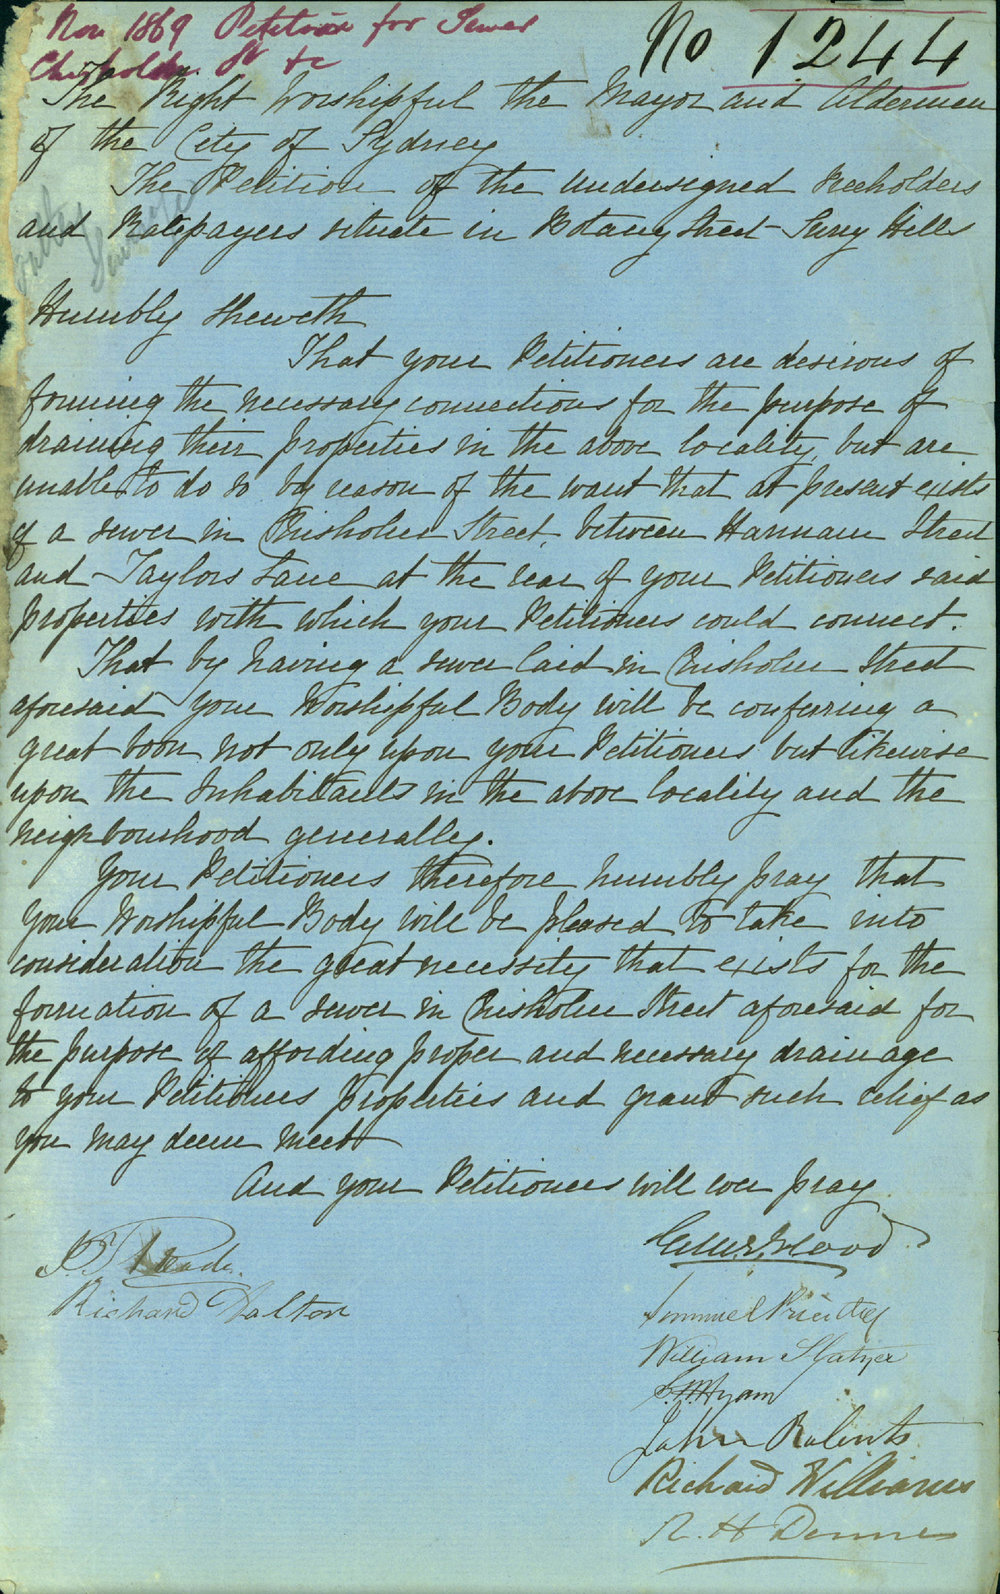 Nov 1869 Petition for Sewer
Chisholm St &c
No 1244
The Right Worshipful the Mayor and Aldermen
of the City of Sydney
The Petition of the undersigned Freeholders
and Ratepayers situate in Botany Street Surry Hills
Humbly Sheweth
That your Petitioners are desirous of
forming the necessary connections for the purpose of
draining their properties in the above locality, but are
unable to do so by reason of the want that at present exists
of a sewer in Chisholm Street, between Hannam Street
and Taylors Lane at the rear of your Petitioners said
properties with which your Petitioners could connect.
That by having a sewer laid in Chisholm Street
aforesaid your Worshipful Body will be conferring a
great boon not only upon your Petitioners but likewise
upon the Inhabitants in the above locality and the
neighbourhood generally.
Your Petitioners therefore humbly pray that
your Worshipful Body will be pleased to take into
consideration the great necessity that exists for the
formation of a sewer in Chisholm Street aforesaid for
the purpose of affording proper and necessary drainage
to your Petitioners properties and grant such relief as
you may deem meet
And your Petitioners will ever pray
Hood
Richard Dalton
William
Hyam
John Roberts
Richard Williams
R. H